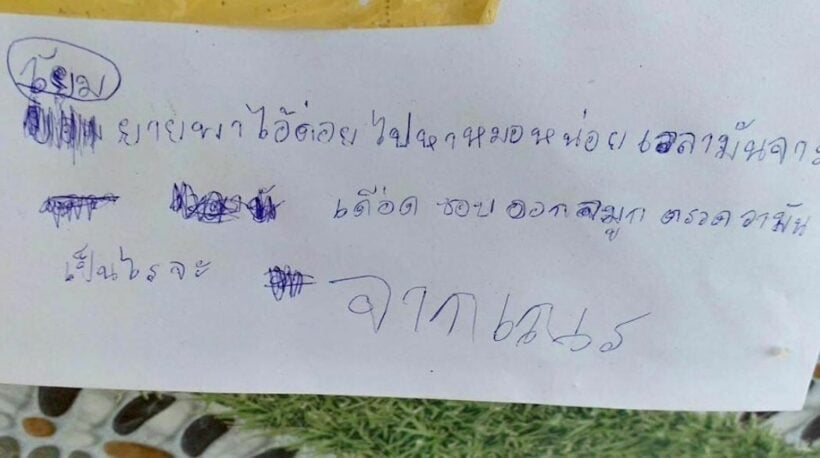 ยายพาไอ้ด่อยไปหาหมอหน่อย เวลามันจาะ
เดือด ชอบ ออก สมูก ตรวด วามัน
เป็นไรจะ
จากเนนร